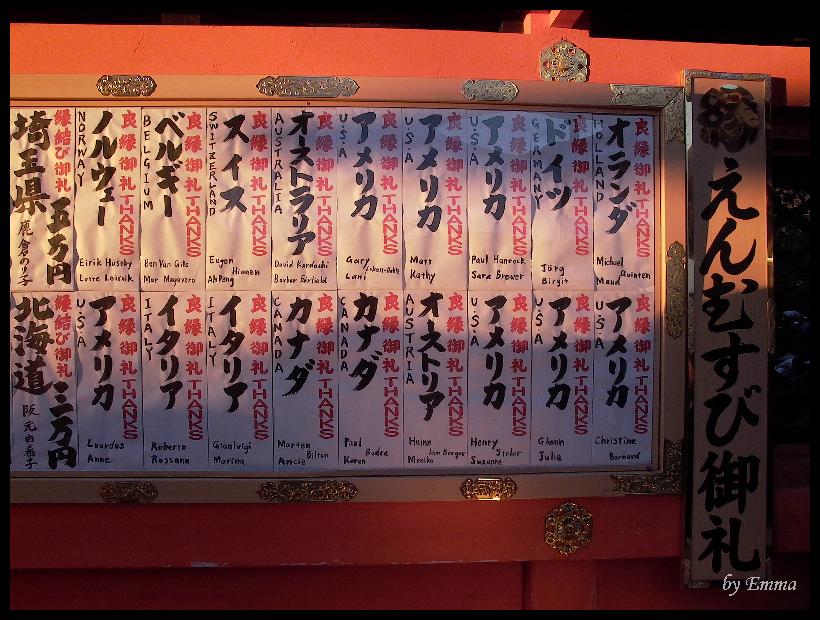 えんむすび御礼
良縁御礼 THANKS
オランダ
HOLLAND
Michael
Maud Quinten
良縁御礼 THANKS
ドイツ
GERMANY
Jörg
Birgit
良縁御礼 THANKS
アメリカ
U.S.A
Paul Hancock
Sara Brewer
良縁御礼 THANKS
アメリカ
U.S.A
Matt
Kathy
良縁御礼 THANKS
アメリカ
U.S.A
Gary
Lani
良縁御礼 THANKS
オーストラリア
AUSTRALIA
David
良縁御礼 THANKS
スイス
SWITZERLAND
Eugen
AhPeng
良縁御礼 THANKS
ベルギー
BELGIUM
Ban Van Gils
Mar
良縁御礼 THANKS
ノルウェー
NORWAY
Eirik Huseby
縁結び御礼 五万円
埼玉県
良縁御礼 THANKS
アメリカ
U.S.A
Christine
Bernard
良縁御礼 THANKS
アメリカ
U.S.A
Glenn
Julie
良縁御礼 THANKS
アメリカ
U.S.A
Henry
Suzanne
良縁御礼 THANKS
オーストリア
AUSTRIA
Heinz
Monika
良縁御礼 THANKS
カナダ
CANADA
Paul
Karen
良縁御礼 THANKS
カナダ
CANADA
Marten
Bilton
良縁御礼 THANKS
イタリア
ITALY
Gianluigi
Marina
良縁御礼 THANKS
イタリア
ITALY
Roberto
Rossana
良縁御礼 THANKS
アメリカ
U.S.A
Lourdes
Anne
縁結び御礼 三万円
北海道
by Emma